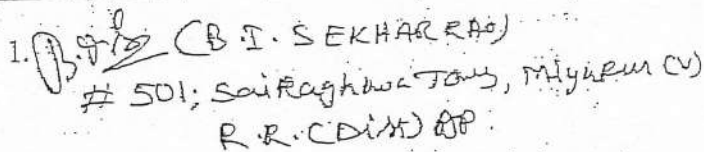 1. (B.I. SEKHAR RAO)
# 501, SaiRaghava Tows, Miyapur (V)
R.R. (Dist) AP.